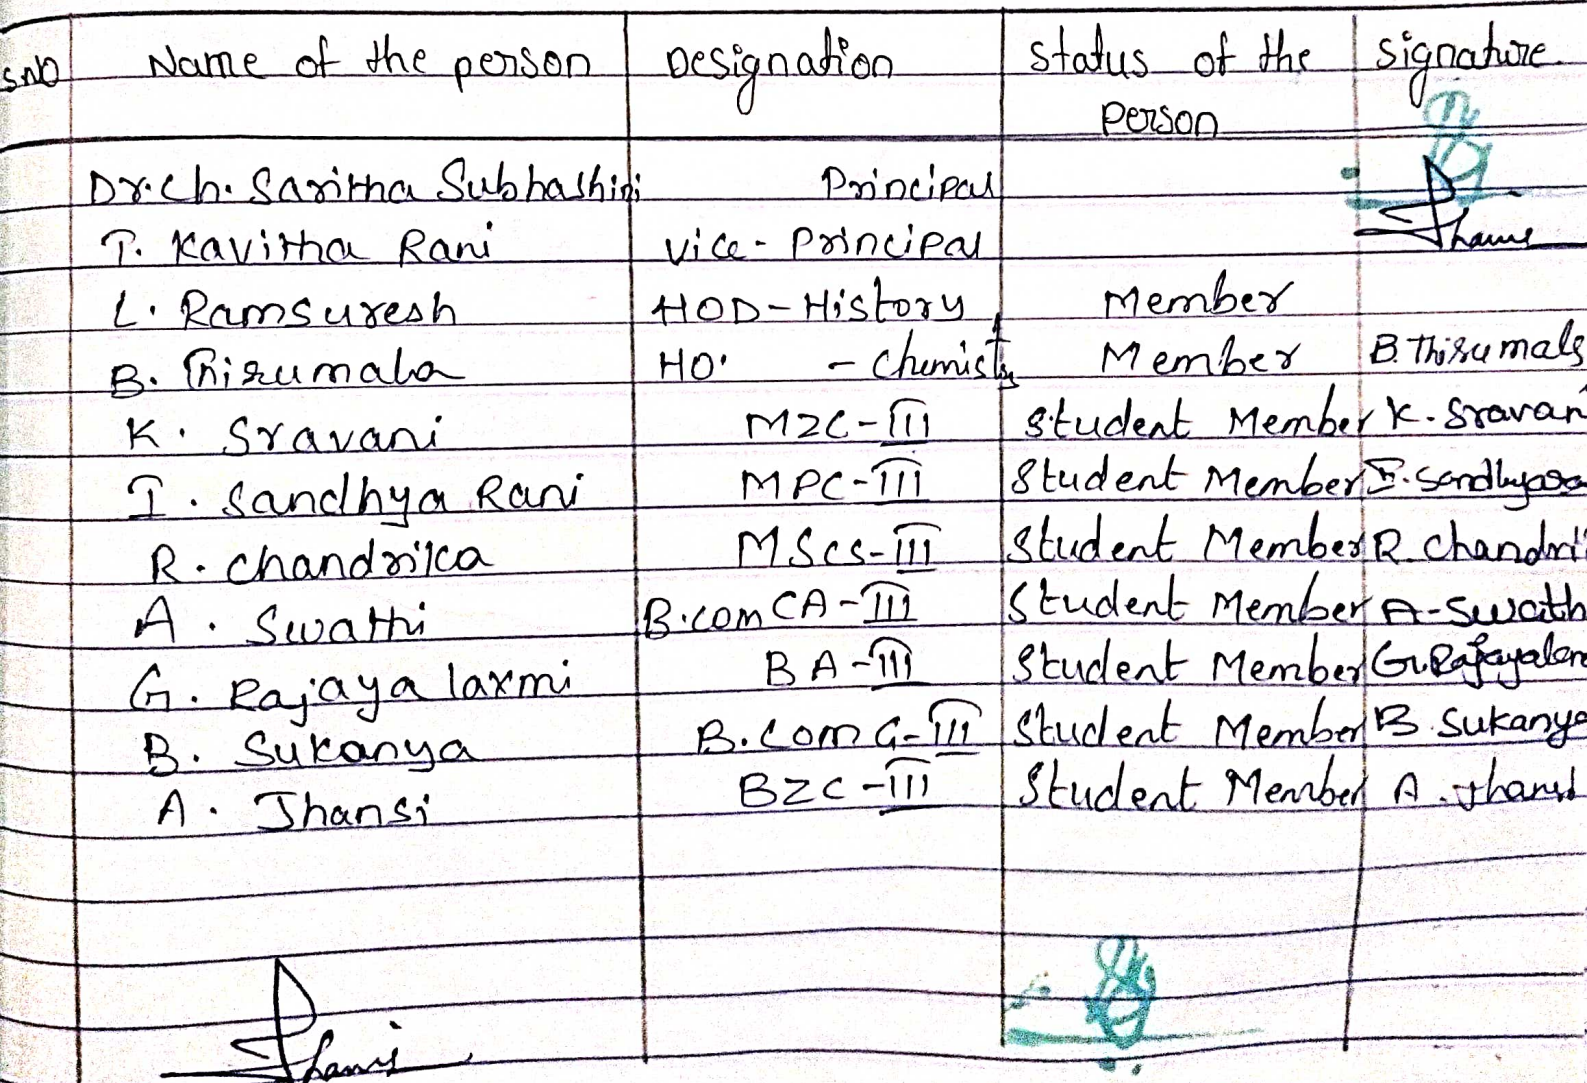 S.NO Name of the person Designation Status of the person Signature
Dr.Ch. Saritha Subhashini Principal
T. Kavitha Rani Vice-Principal
L. Ramsuresh HOD-History Member
B. Thirumala HO - Chemistry Member B. Thirumala
K. Sravani MZC-III Student Member K. Sravan
I. Sandhya Rani MPC-III Student Member I. Sandhyara
R. Chandrika MSCS-III Student Member R. Chandri
A. Swathi B.com CA-III Student Member A-Swath
G. Rajaya laxmi BA-III Student Member G. Rajayalax
B. Sukanya B.Com G-III Student Member B. Sukanya
A. Jhansi BZC-III Student Member A. Jhansi